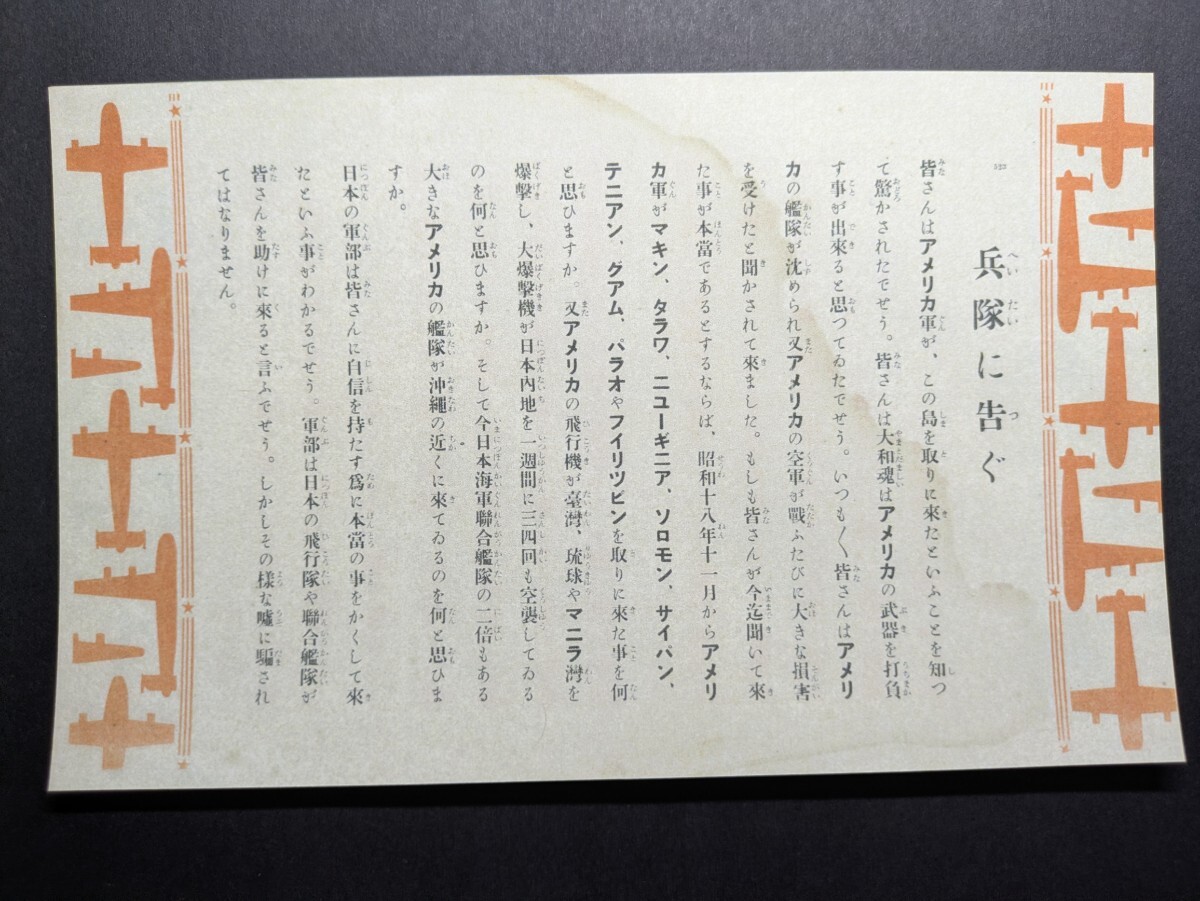 522
兵隊に告ぐ
皆さんはアメリカ軍が、この島を取りに来たといふことを知つ
て驚かされたでせう。皆さんは大和魂はアメリカの武器を打負
す事が出來ると思つてゐたでせう。いつも〱皆さんはアメリ
カの艦隊が沈められ又アメリカの空軍が戰ふたびに大きな損害
を受けたと聞かされて來ました。もしも皆さんが今迄聞いて來
た事が本當であるとするならば、昭和十八年十一月からアメリ
カ軍がマキン、タラワ、ニューギニア、ソロモン、サイパン、
テニアン、グアム、パラオやフイリツピンを取りに來た事を何
と思ひますか。又アメリカの飛行機が臺灣、琉球やマニラ灣を
爆擊し、大爆擊機が日本內地を一週間に三四回も空襲してゐる
のを何と思ひますか。そして今日本海軍聯合艦隊の二倍もある
大きなアメリカの艦隊が沖繩の近くに來てゐるのを何と思ひま
すか。
日本の軍部は皆さんに自信を持たす爲に本當の事をかくして來
たといふ事がわかるでせう。軍部は日本の飛行隊や聯合艦隊が
皆さんを助けに來ると言ふでせう。しかしその樣な噓に騙され
てはなりません。